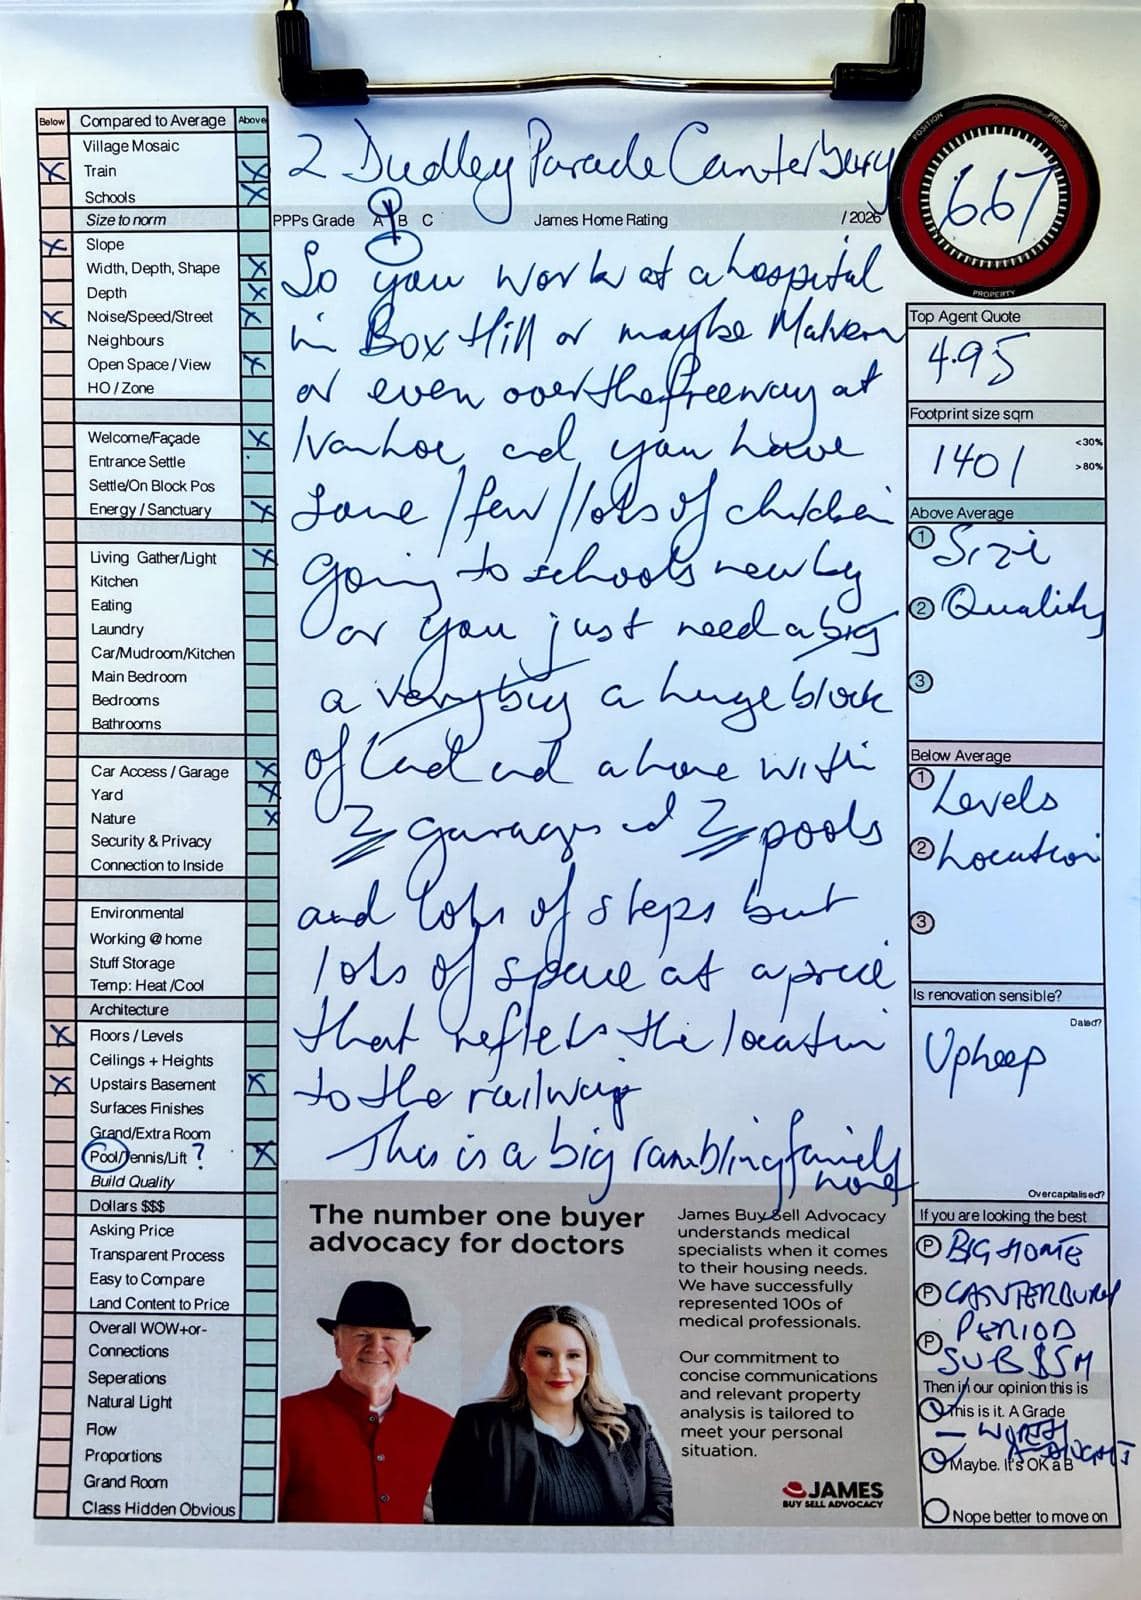 Below Compared to Average Above
Village Mosaic
X Train X
Schools X
Size to norm
X Slope
Width, Depth, Shape X
Depth X
X Noise/Speed/Street X
Neighbours
Open Space / View X
HO / Zone
Welcome/Façade X
Entrance Settle
Settle/On Block Pos
Energy / Sanctuary X
Living Gather/Light X
Kitchen
Eating
Laundry
Car/Mudroom/Kitchen
Main Bedroom
Bedrooms
Bathrooms
Car Access / Garage X
Yard X
Nature X
Security & Privacy
Connection to Inside
Environmental
Working @ home
Stuff Storage
Temp: Heat /Cool
Architecture
X Floors / Levels
Ceilings + Heights
X Upstairs Basement X
Surfaces Finishes
Grand/Extra Room
Pool/Tennis/Lift ? X
Build Quality
Dollars $$$
Asking Price
Transparent Process
Easy to Compare
Land Content to Price
Overall WOW+or-
Connections
Seperations
Natural Light
Flow
Proportions
Grand Room
Class Hidden Obvious
2 Dudley Parade Canterbury
PPPs Grade A B C James Home Rating / 2026
So you work at a hospital
in Box Hill or maybe Malvern
or even over the freeway at
Ivanhoe and you have
some / few / lots of children
going to schools nearby
or you just need a big
a very big a huge block
of land and a home with
2 garages and 2 pools
and lots of steps but
lots of space at a price
that reflects the location
to the railway
This is a big rambling family
home
The number one buyer
advocacy for doctors
James Buy Sell Advocacy
understands medical
specialists when it comes
to their housing needs.
We have successfully
represented 100s of
medical professionals.
Our commitment to
concise communications
and relevant property
analysis is tailored to
meet your personal
situation.
JAMES
BUY SELL ADVOCACY
POSITION
PRICE
667
PROPERTY
Top Agent Quote
4.95
Footprint size sqm
1401
<30%
>80%
Above Average
1 Size
2 Quality
3
Below Average
1 Levels
2 Location
3
Is renovation sensible?
Dated?
Upkeep
Overcapitalised?
If you are looking the best
P BIG HOME
P CANTERBURY
P PERIOD
SUB $5M
Then in our opinion this is
This is it. A Grade
- WORTH
A THOUGHT
Maybe. It's OK a B
Nope better to move on